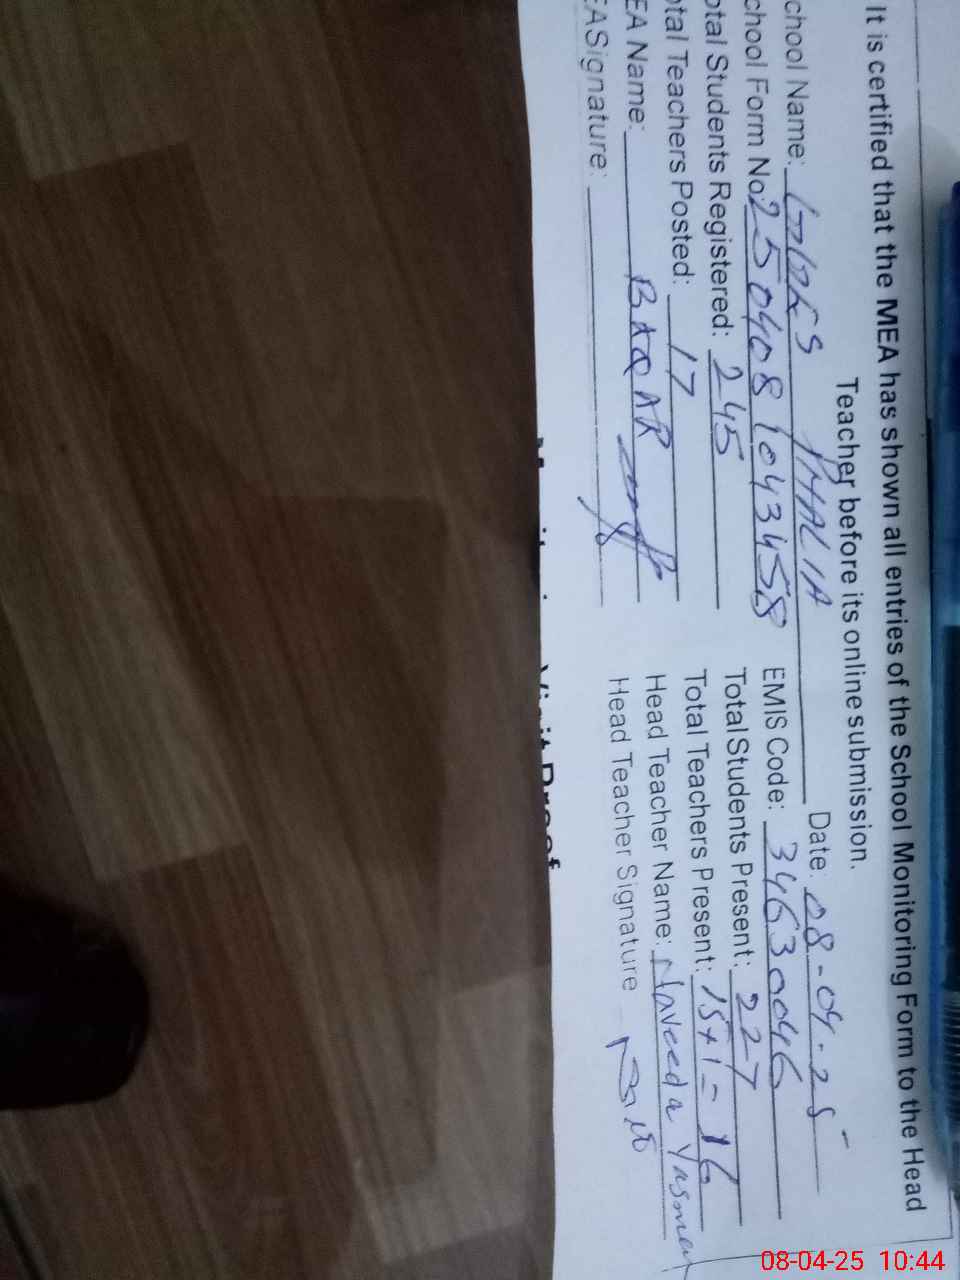 It is certified that the MEA has shown all entries of the School Monitoring Form to the Head
Teacher before its online submission.
chool Name: PHALIA Date: 08-04-25
chool Form No: 2504081043458 EMIS Code: 34630046
otal Students Registered: 245 Total Students Present: 227
otal Teachers Posted: 17 Total Teachers Present: 15+1=16
EA Name: BAQAR Head Teacher Name: Naveeda Yasmen
EA Signature: Head Teacher Signature
08-04-25 10:44